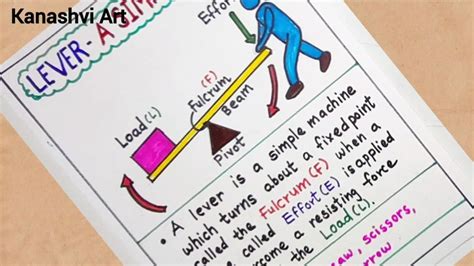 Kanashvi Art
LEVER- A SIM
Effort
(F)
Fulcrum
Beam
Load(L)
Pivot
• A lever is a simple machine
which turns about a fixed point
called the Fulcrum(F) when a
called Effort(E) is applied
ercome a resisting force
the Load(L).
saw, scissors,